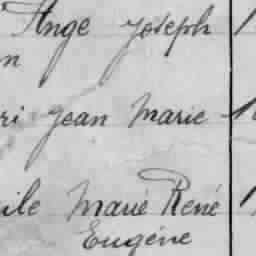 Ange Joseph
Jean Marie
Marie René
Eugène